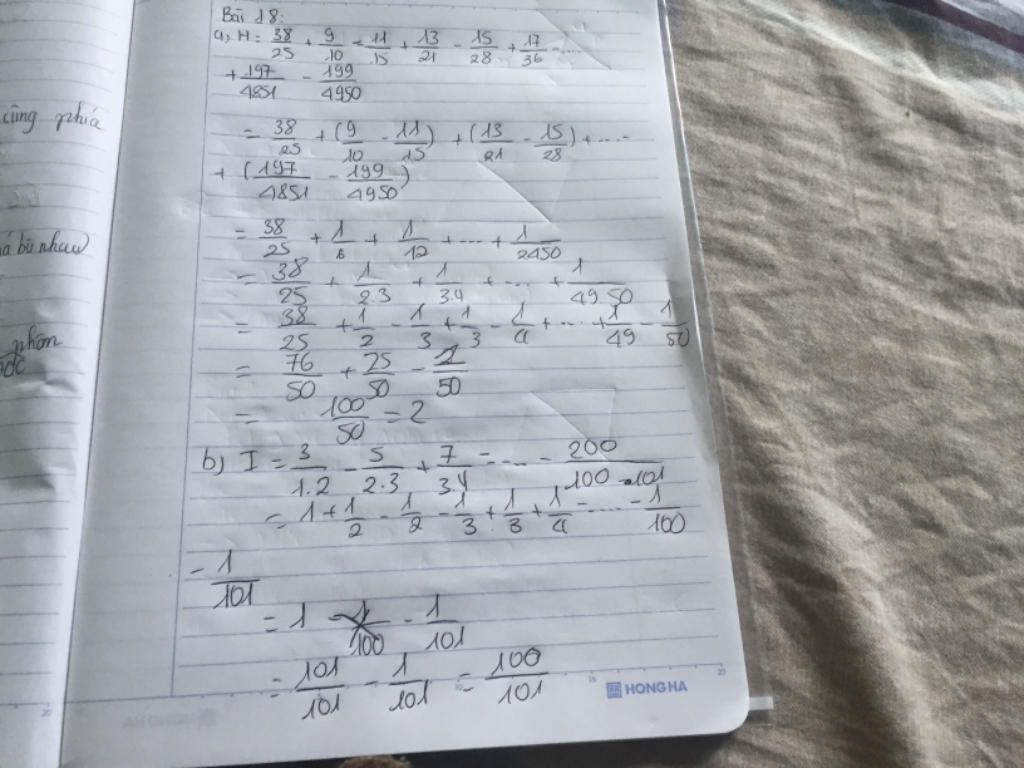 cùng phía
bù nhau
phẩm
Bài 18:
a, H = 38/25 + 9/10 - 11/15 + 13/21 - 15/28 + 17/36 - ....
+ 197/4851 - 199/4950
= 38/25 + (9/10 - 11/15) + (13/21 - 15/28) + ....
+ (197/4851 - 199/4950)
= 38/25 + 1/6 + 1/12 + .... + 1/2450
= 38/25 + 1/2.3 + 1/3.4 + ... + 1/49.50
= 38/25 + 1/2 - 1/3 + 1/3 - 1/4 + ... + 1/49 - 1/50
= 76/50 + 25/50 - 1/50
= 100/50 = 2
b) I = 3/1.2 - 5/2.3 + 7/3.4 - .... - 200/100.101
= 1 + 1/2 - 1/2 - 1/3 + 1/3 + 1/4 - .... - 1/100
- 1/101
= 1 - 1/100 - 1/101
= 101/101 - 1/101 = 100/101
HONG HA